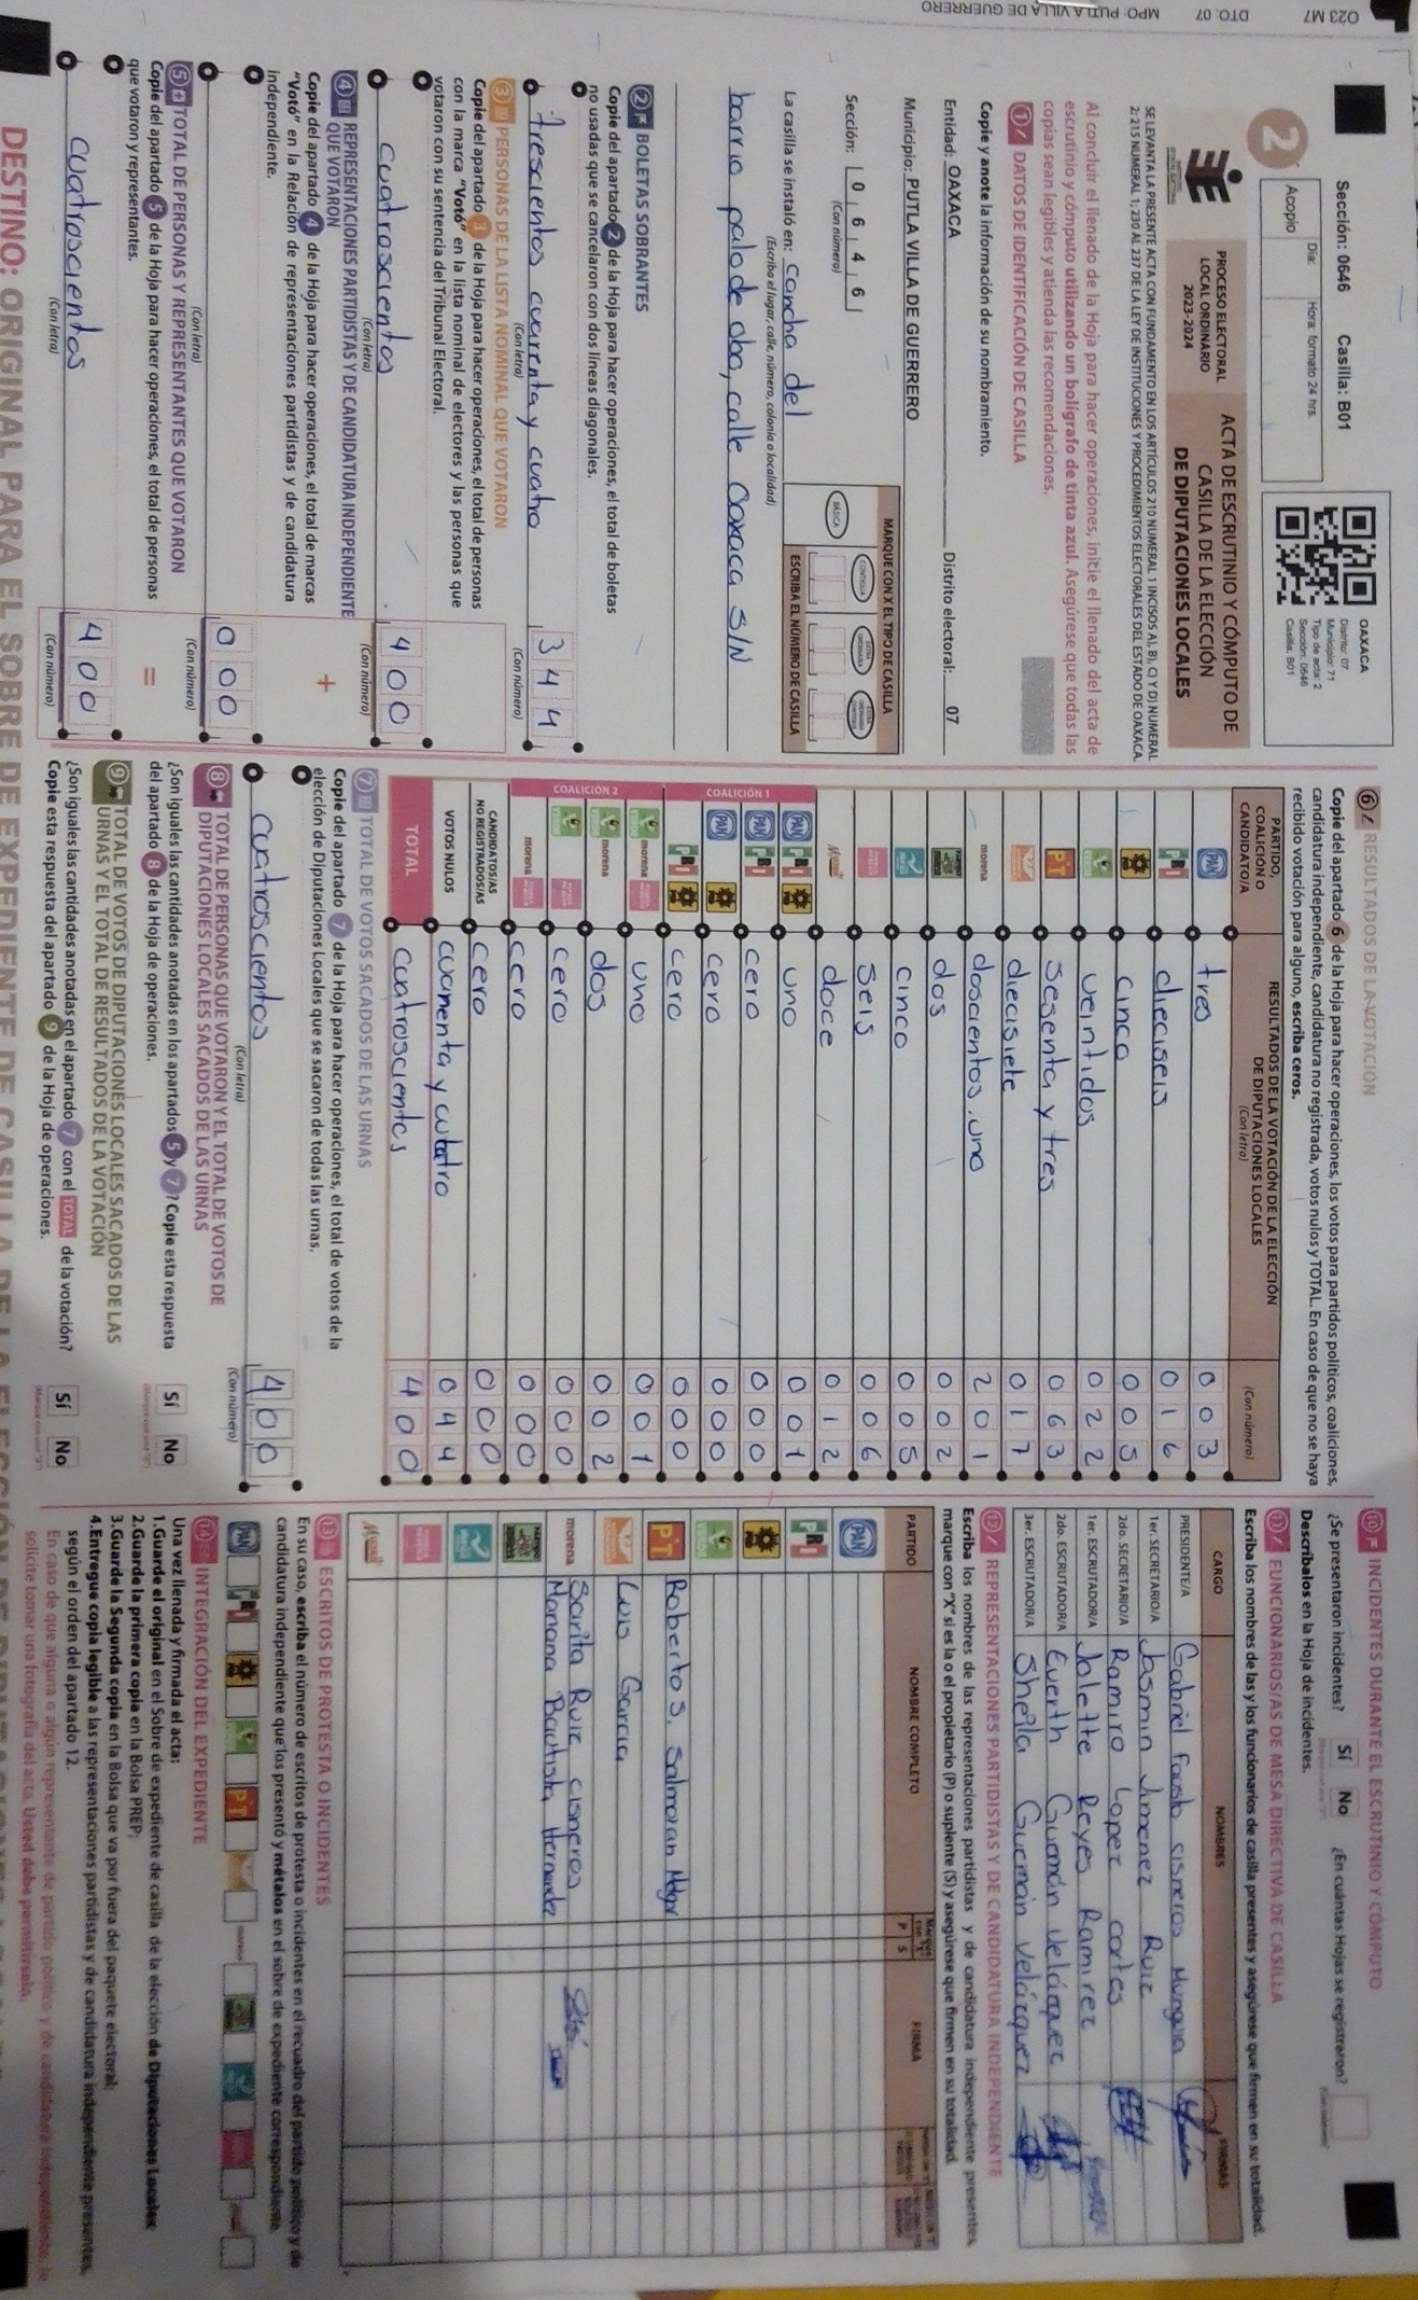 O23 M7
DTO: 07
MPO: PUTLA VILLA DE GUERRERO
Sección: 0646 Casilla: B01
2
Día:
Hora: formato 24 hrs.
Acopio
OAXACA
Distrito: 07
Municipio: 71
Tipo de acta: 2
Sección: 0646
Casilla: B01
PROCESO ELECTORAL
LOCAL ORDINARIO
2023-2024
ACTA DE ESCRUTINIO Y CÓMPUTO DE
CASILLA DE LA ELECCIÓN
DE DIPUTACIONES LOCALES
SE LEVANTA LA PRESENTE ACTA CON FUNDAMENTO EN LOS ARTÍCULOS 210 NUMERAL 1 INCISOS A), B), C) Y D) NUMERAL
2; 215 NUMERAL 1; 230 AL 237 DE LA LEY DE INSTITUCIONES Y PROCEDIMIENTOS ELECTORALES DEL ESTADO DE OAXACA.
Al concluir el llenado de la Hoja para hacer operaciones, inicie el llenado del acta de
escrutinio y cómputo utilizando un bolígrafo de tinta azul. Asegúrese que todas las
copias sean legibles y atienda las recomendaciones.
1 DATOS DE IDENTIFICACIÓN DE CASILLA
Copie y anote la información de su nombramiento.
Entidad: OAXACA Distrito electoral: 07
Municipio: PUTLA VILLA DE GUERRERO
Sección: 0 6 4 6
(Con número)
MARQUE CON X EL TIPO DE CASILLA
BÁSICA
CONTIGUA
ESCRIBA EL NÚMERO DE CASILLA
La casilla se instaló en: cancha del
(Escriba el lugar, calle, número, colonia o localidad)
barrio palo de oba, calle Oaxaca S/N
2 BOLETAS SOBRANTES
Copie del apartado 2 de la Hoja para hacer operaciones, el total de boletas
no usadas que se cancelaron con dos líneas diagonales.
trescientos cuarenta y cuatro 3 4 4
(Con letra) (Con número)
3 PERSONAS DE LA LISTA NOMINAL QUE VOTARON
Copie del apartado 3 de la Hoja para hacer operaciones, el total de personas
con la marca "Votó" en la lista nominal de electores y las personas que
votaron con su sentencia del Tribunal Electoral.
cuatroscientos 4 0 0
(Con letra) (Con número)
4 REPRESENTACIONES PARTIDISTAS Y DE CANDIDATURA INDEPENDIENTE
QUE VOTARON
Copie del apartado 4 de la Hoja para hacer operaciones, el total de marcas
"Votó" en la Relación de representaciones partidistas y de candidatura
independiente.
+
0 0 0
(Con letra) (Con número)
5 TOTAL DE PERSONAS Y REPRESENTANTES QUE VOTARON
Copie del apartado 5 de la Hoja para hacer operaciones, el total de personas
que votaron y representantes.
=
cuatroscientos 4 0 0
(Con letra) (Con número)
6 RESULTADOS DE LA VOTACIÓN
Copie del apartado 6 de la Hoja para hacer operaciones, los votos para partidos políticos, coaliciones,
candidatura independiente, candidatura no registrada, votos nulos y TOTAL. En caso de que no se haya
recibido votación para alguno, escriba ceros.
PARTIDO,
COALICIÓN O
CANDIDATO/A
RESULTADOS DE LA VOTACIÓN DE LA ELECCIÓN
DE DIPUTACIONES LOCALES
(Con letra) (Con número)
PAN tres 0 0 3
PRI dieciseis 0 1 6
PRD cinco 0 0 5
VERDE veintidos 0 2 2
PT sesenta y tres 0 6 3
diecisiete 0 1 7
morena doscientos uno 2 0 1
dos 0 0 2
cinco 0 0 5
seis 0 0 6
doce 0 1 2
COALICIÓN 1
PAN PRI PRD uno 0 0 1
PAN PRI cero 0 0 0
PAN PRD cero 0 0 0
PRI PRD cero 0 0 0
COALICIÓN 2
VERDE morena uno 0 0 1
VERDE morena dos 0 0 2
VERDE cero 0 0 0
morena cero 0 0 0
CANDIDATOS/AS
NO REGISTRADOS/AS cero 0 0 0
VOTOS NULOS cuarenta y cuatro 0 4 4
TOTAL cuatroscientos 4 0 0
7 TOTAL DE VOTOS SACADOS DE LAS URNAS
Copie del apartado 7 de la Hoja para hacer operaciones, el total de votos de la
elección de Diputaciones Locales que se sacaron de todas las urnas.
cuatroscientos 4 0 0
(Con letra) (Con número)
8 TOTAL DE PERSONAS QUE VOTARON Y EL TOTAL DE VOTOS DE
DIPUTACIONES LOCALES SACADOS DE LAS URNAS
¿Son iguales las cantidades anotadas en los apartados 5 y 7? Copie esta respuesta
del apartado 8 de la Hoja de operaciones.
Sí No
9 TOTAL DE VOTOS DE DIPUTACIONES LOCALES SACADOS DE LAS
URNAS Y EL TOTAL DE RESULTADOS DE LA VOTACIÓN
¿Son iguales las cantidades anotadas en el apartado 7 con el TOTAL de la votación?
Copie esta respuesta del apartado 9 de la Hoja de operaciones.
Sí No
10 INCIDENTES DURANTE EL ESCRUTINIO Y CÓMPUTO
¿Se presentaron incidentes? Sí No ¿En cuántas Hojas se registraron?
Descríbalos en la Hoja de incidentes.
11 FUNCIONARIOS/AS DE MESA DIRECTIVA DE CASILLA
Escriba los nombres de las y los funcionarios de casilla presentes y asegúrese que firmen en su totalidad.
CARGO NOMBRES FIRMAS
PRESIDENTE/A Gabriel Fausto Cisneros Munguia
1er. SECRETARIO/A Jasmin Jimenez Ruiz
2do. SECRETARIO/A Ramiro Lopez cortes
1er. ESCRUTADOR/A Jolette Reyes Ramirez
2do. ESCRUTADOR/A Everth Guzmán Velázquez
3er. ESCRUTADOR/A Sheila Guzmán Velázquez
12 REPRESENTACIONES PARTIDISTAS Y DE CANDIDATURA INDEPENDIENTE
Escriba los nombres de las representaciones partidistas y de candidatura independiente presentes,
marque con "X" si es la o el propietario (P) o suplente (S) y asegúrese que firmen en su totalidad.
PARTIDO NOMBRE COMPLETO P S FIRMA
PAN
PRI
PRD
VERDE
PT Roberto S. Salmoran
Luis Garcia
morena Sarita Ruiz cisneros
Mariana Bautista Hernandez
13 ESCRITOS DE PROTESTA O INCIDENTES
En su caso, escriba el número de escritos de protesta o incidentes en el recuadro del partido político y de
candidatura independiente que los presentó y métalos en el sobre de expediente correspondiente.
PAN PRI PRD VERDE PT morena
14 INTEGRACIÓN DEL EXPEDIENTE
Una vez llenada y firmada el acta:
1.Guarde el original en el Sobre de expediente de casilla de la elección de Diputaciones Locales;
2.Guarde la primera copia en la Bolsa PREP;
3.Guarde la Segunda copia en la Bolsa que va por fuera del paquete electoral;
4.Entregue copia legible a las representaciones partidistas y de candidatura independiente presentes,
según el orden del apartado 12.
En caso de que alguna o algún representante de partido político y de candidatura independiente, le
solicite tomar una fotografía del acta. Usted debe permitírselo.
DESTINO: ORIGINAL PARA EL SOBRE DE EXPEDIENTE DE CASILLA DE LA ELECCIÓN DE DIPUTACIONES LOCALES